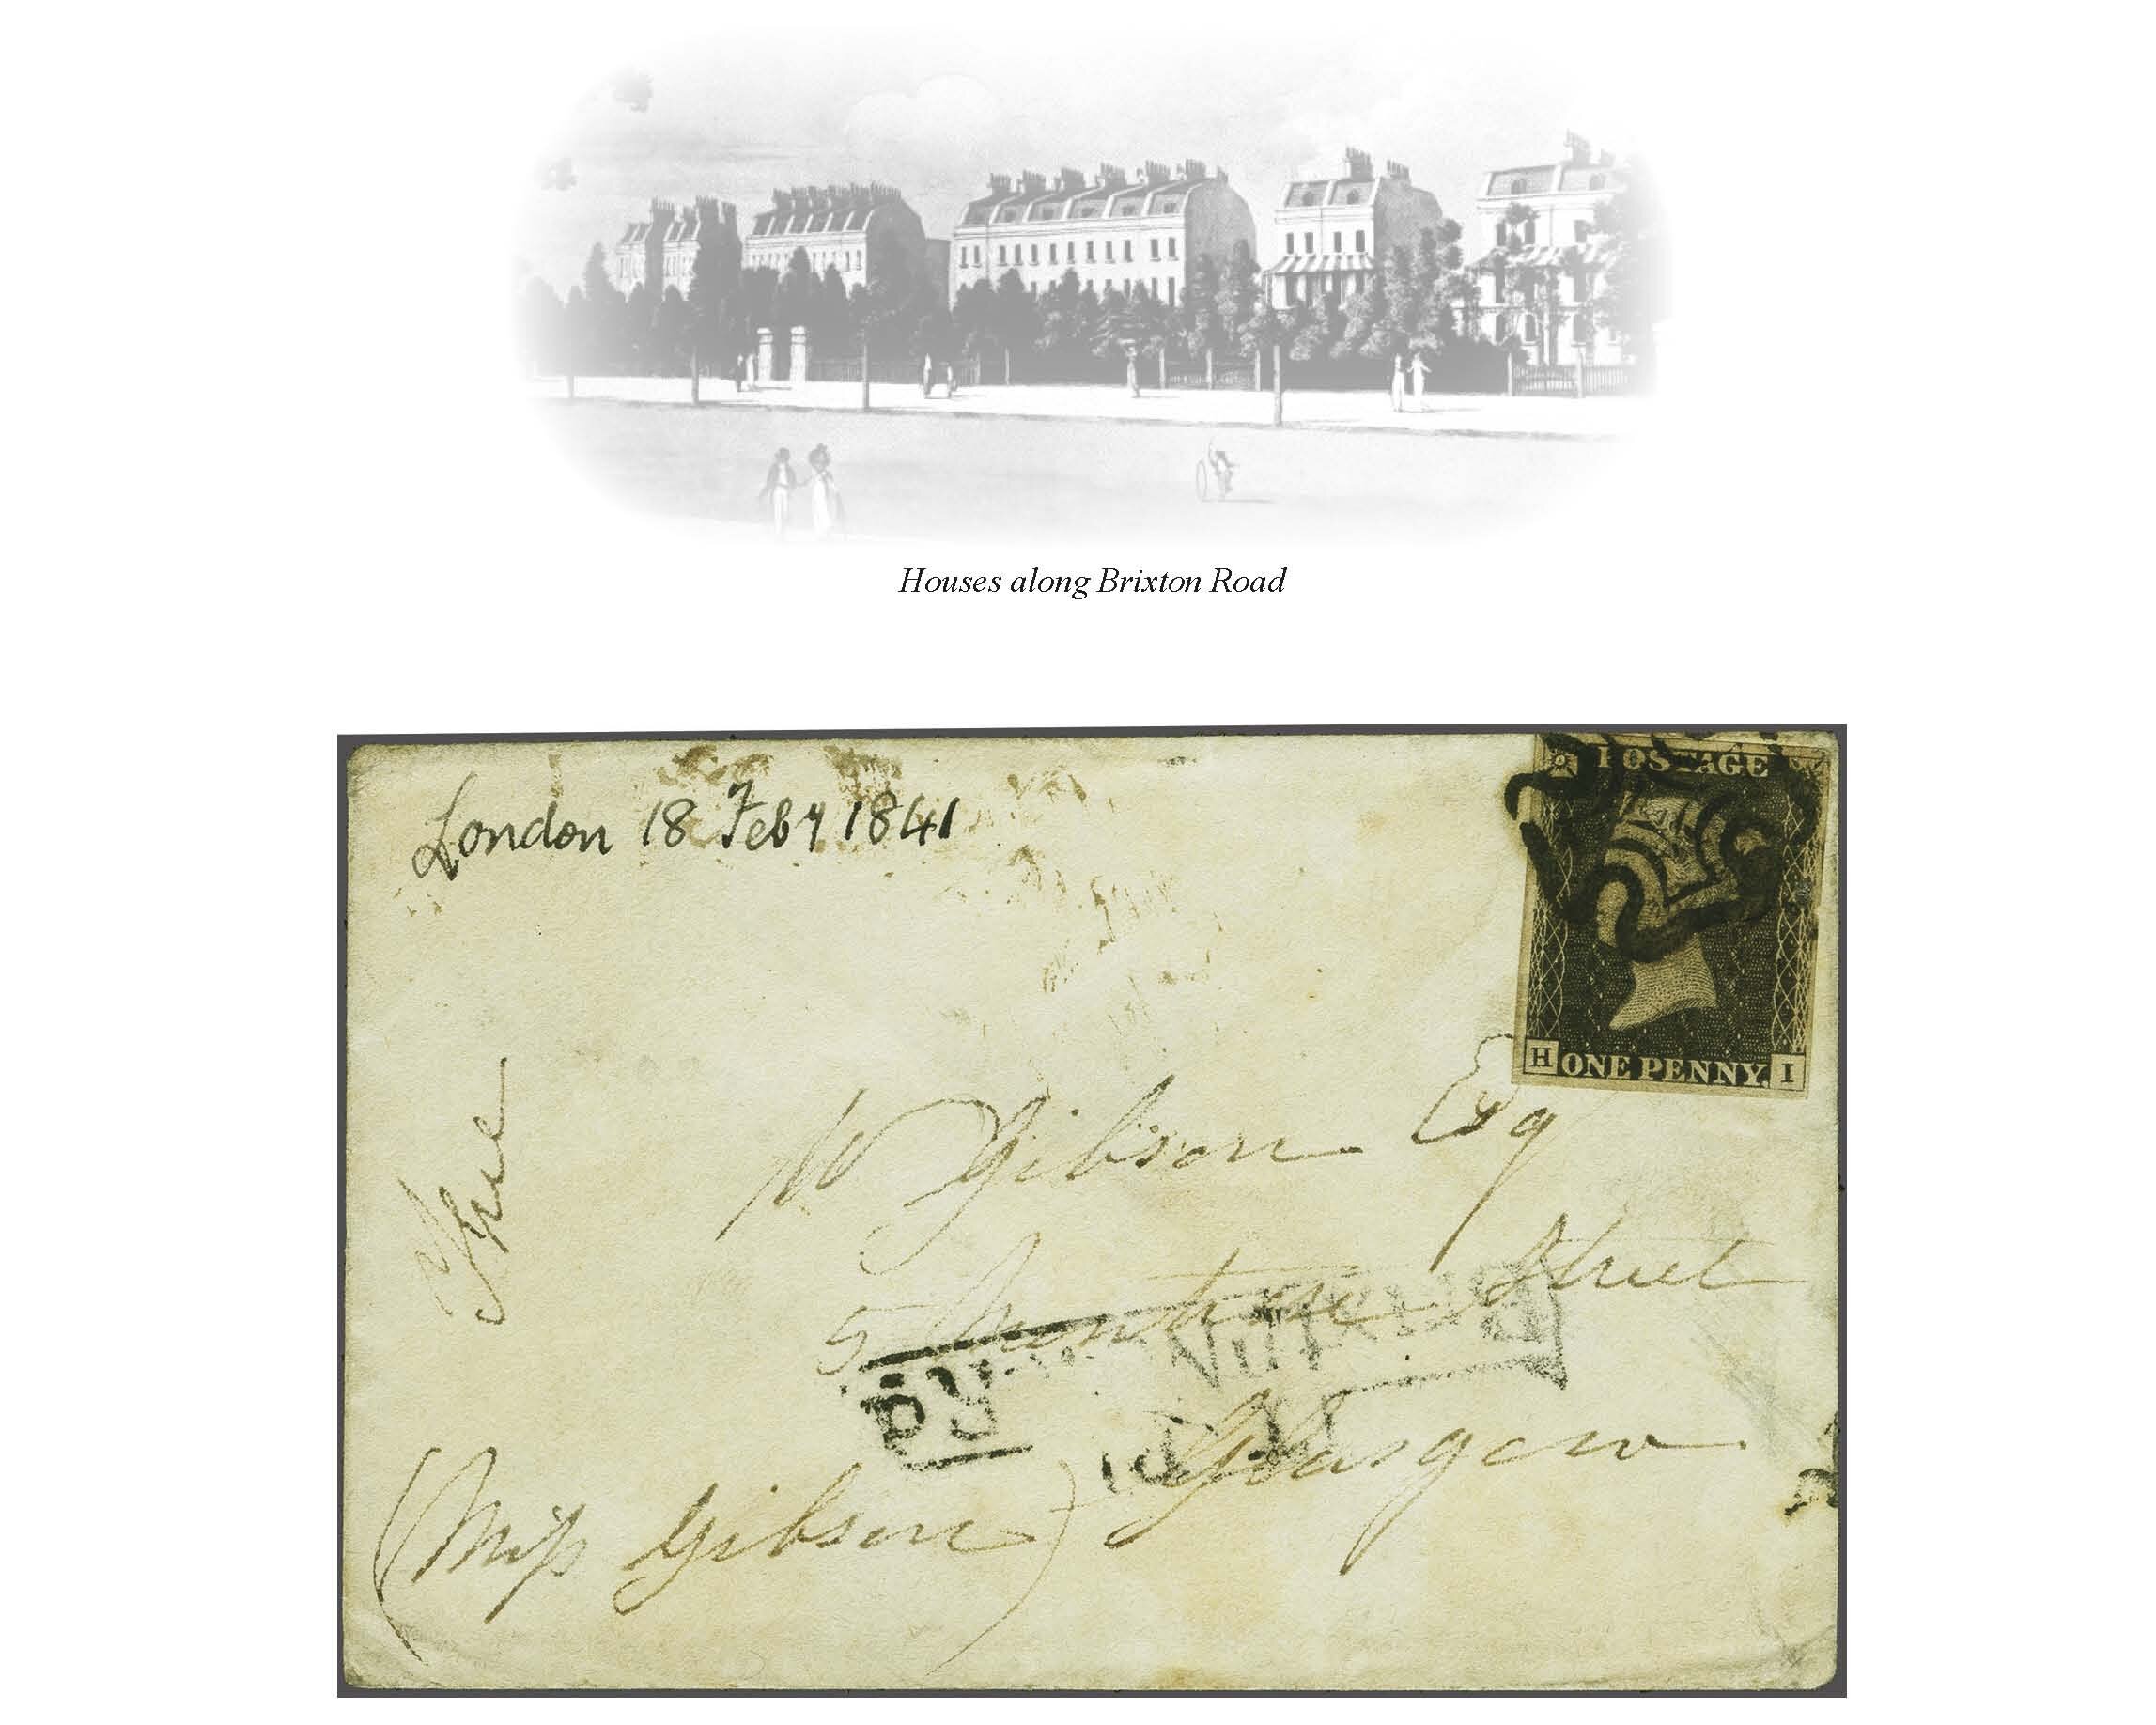 Houses along Brixton Road
London 18 Feby 1841
POSTAGE
H ONE PENNY. I
Free
W Gibson Esq
5 Montrose Street
Glasgow
(Miss Gibson)